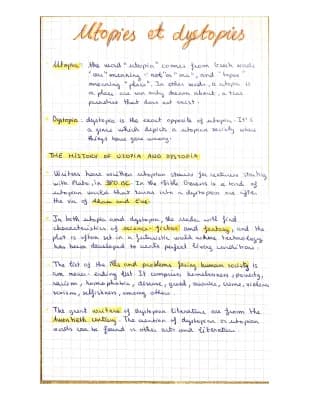 Utopies et dystopies
Utopia: the word "utopia" comes from Greek words
"ou" meaning "not" or "no", and "topos"
meaning "place". In other words, a utopia is
a place we can only dream about, a true
paradise that does not exist.
Dystopia: dystopia is the exact opposite of utopia. It's
a genre which depicts a utopian society where
things have gone wrong.
THE HISTORY OF UTOPIA AND DYSTOPIA
Writers have written utopian stories for centuries starting
with Plato, in BC. In the Bible Genesis is a kind of
utopian world that turns into a dystopian one after
the sin of Adam and Eve.
In both utopia and dystopia, the reader will find
characteristics of science-fiction and fantasy, and the
plot is often set in a futuristic world where technology
has been developed to create perfect living conditions.
The list of the ills and problems facing human society is
a never-ending list. It comprises homelessness, poverty,
racism, homophobia, disease, greed, suicide, crime, violence
sexism, selfishness, among others.
The great writers of dystopian literature are from the
twentieth century. The mention of dystopian or utopian
can be found in other arts and literature.